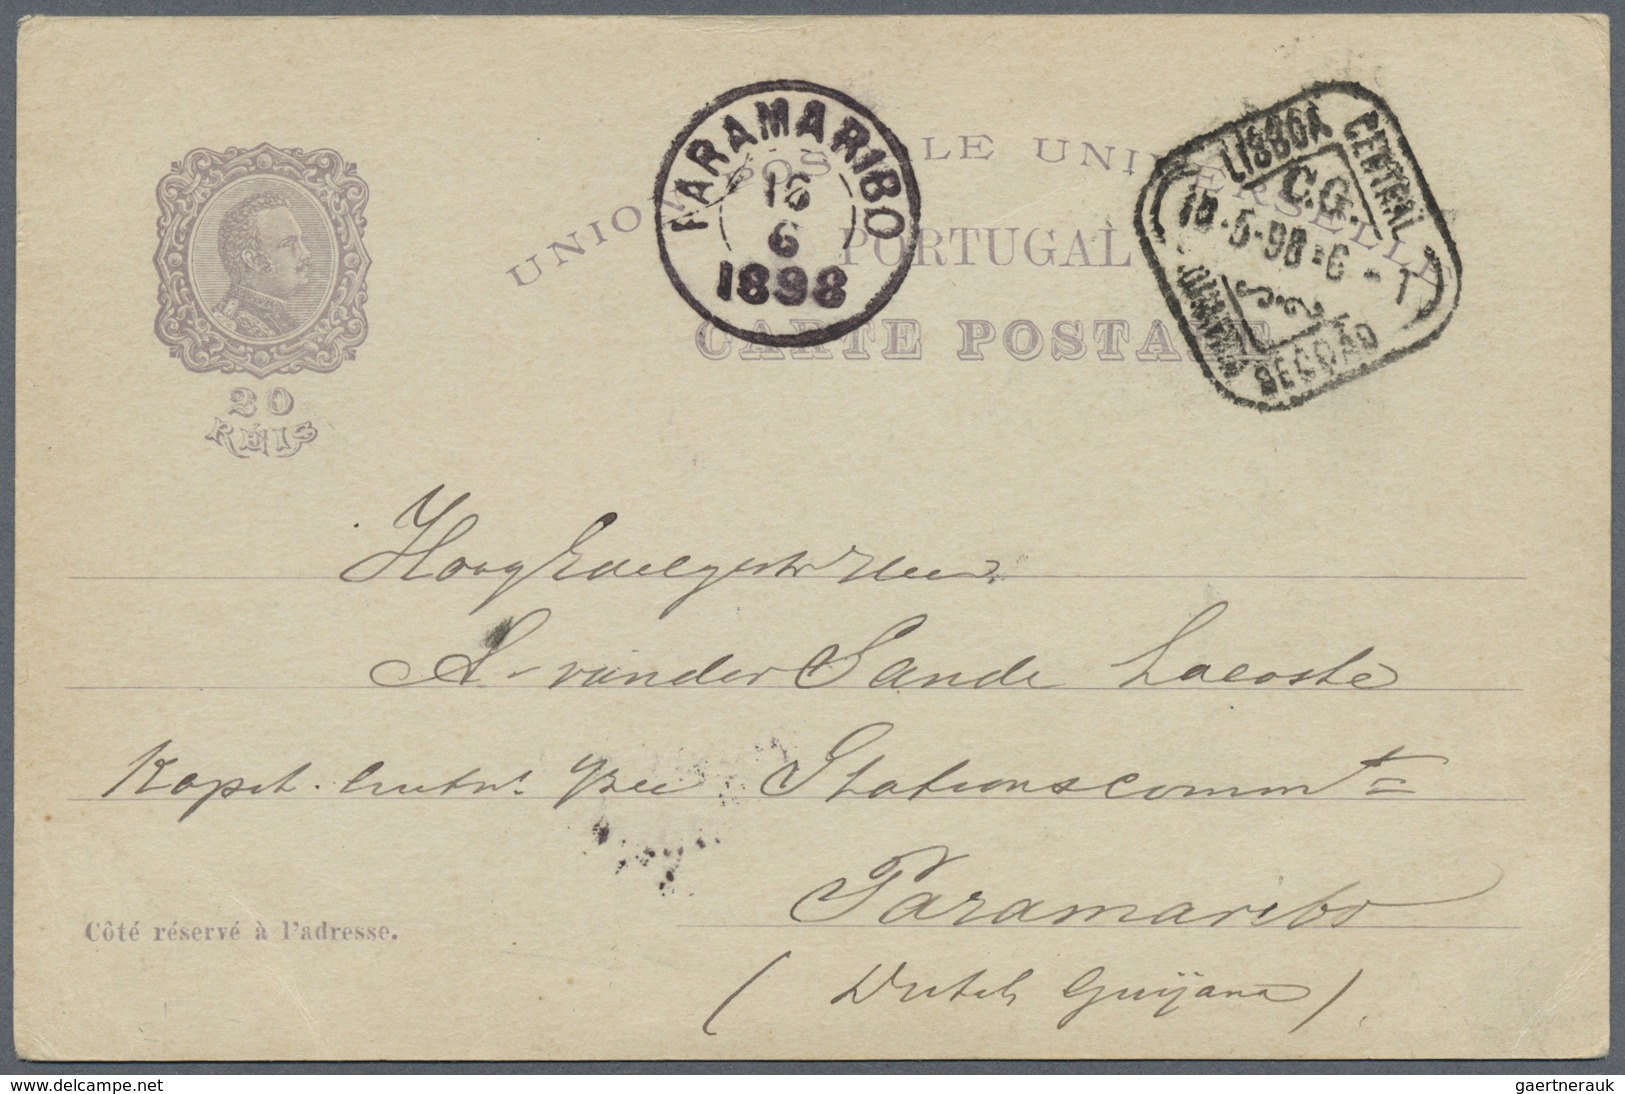 UNION POSTALE UNIVERSELLE
PORTUGAL
CARTE POSTALE
20
RÉIS
PARAMARIBO
16
6
1898
LISBOA CENTRAL
C.G.
5-98-6-T
SECÇÃO
HoogEdelgestr Heer
A. van der Sande Lacoste
Kapit. Stationscommt
Paramaribo
(Dutch Guijana)
Côté réservé à l'adresse.
www.delcampe.net
gaertnerauk